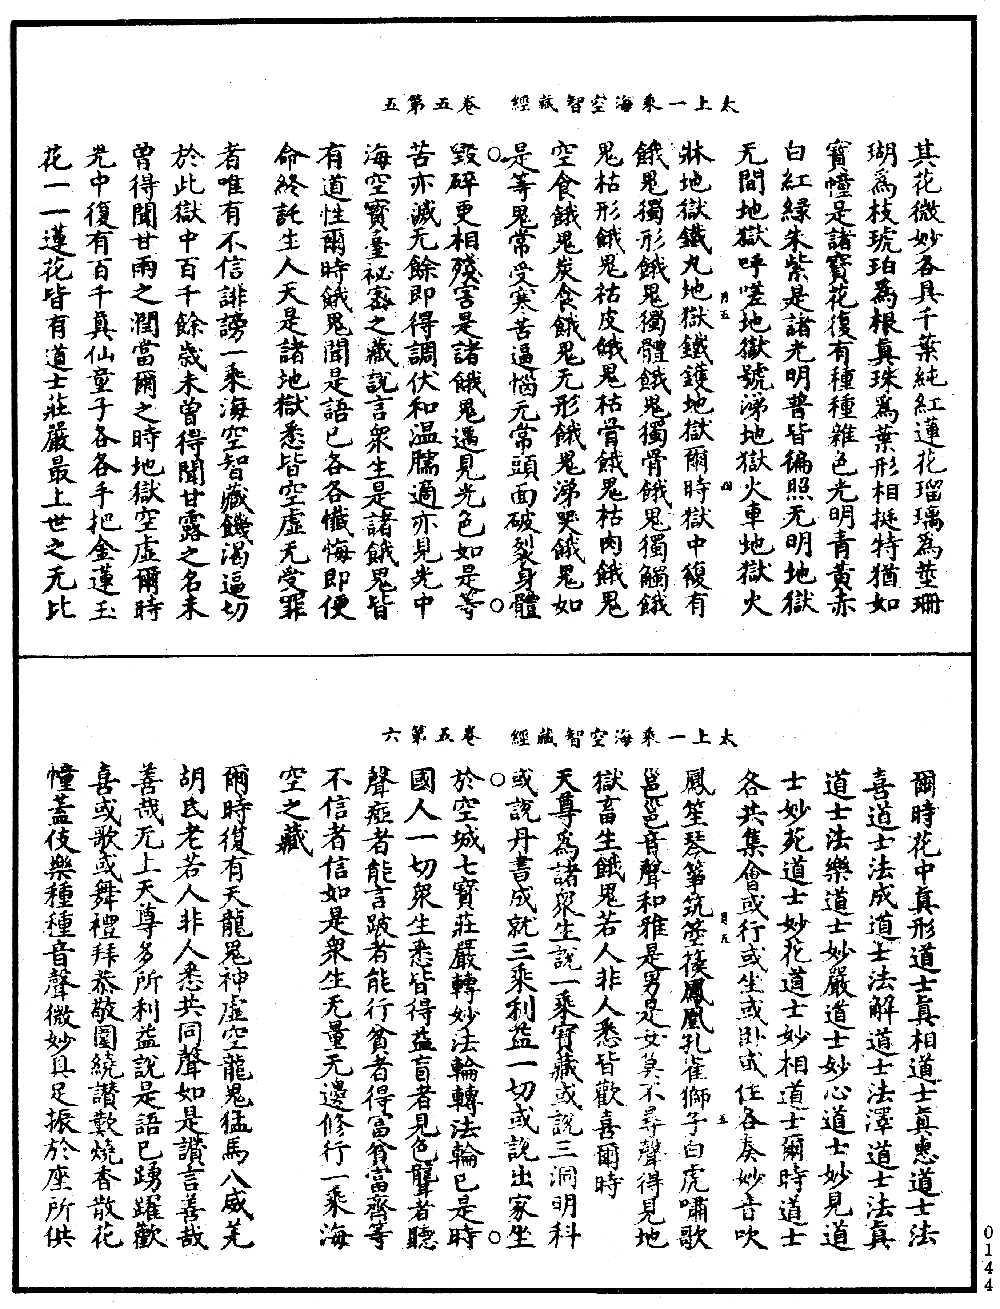 太上一乘海空智藏經 卷五第五
其花微妙各具千葉純紅蓮花瑠璃為莖珊
瑚為枝琥珀為根真珠為葉形相挺特猶如
寶幢是諸寶花復有種種雜色光明青黃赤
白紅緣朱紫是諸光明普皆徧照无明地獄
无間地獄呼嗟地獄號涕地獄火車地獄火
牀地獄鐵丸地獄鐵鑊地獄爾時獄中復有
餓鬼獨形餓鬼獨體餓鬼獨骨餓鬼獨觸餓
鬼枯形餓鬼枯皮餓鬼枯骨餓鬼枯肉餓鬼
空食餓鬼炭食餓鬼无形餓鬼涕哭餓鬼如
是等鬼常受寒苦逼惱元常頭面破裂身體
毀碎更相殘害是諸餓鬼遇見光色如是等
苦亦滅无餘即得調伏和温臑適亦見光中
海空寶臺祕密之藏說言衆生是諸餓鬼皆
有道性爾時餓鬼聞是語已各各懺悔即便
命終託生人天是諸地獄悉皆空虛无受罪
者唯有不信誹謗一乘海空智藏饑渴逼切
於此獄中百千餘歲未曾得聞甘露之名未
曾得聞甘雨之潤當爾之時地獄空虛爾時
光中復有百千真仙童子各各手把金蓮玉
花一一蓮花皆有道士莊嚴最上世之无比
月五
四
太上一乘海空智藏經 卷五第六
爾時花中真形道士真相道士真惠道士法
喜道士法成道士法解道士法澤道士法真
道士法樂道士妙嚴道士妙心道士妙見道
士妙苑道士妙花道士妙相道士爾時道士
各共集會或行或坐或卧或住各奏妙音吹
鳳笙琴箏筑箜篌鳳凰孔雀獅子白虎嘯歌
邕邕音聲和雅是男是女莫不尋聲得見地
獄畜生餓鬼若人非人悉皆歡喜爾時
天尊為諸衆生說一乘寶藏或說三洞明科
或說丹書成就三乘利益一切或說出家坐
於空城七寶莊嚴轉妙法輪轉法輪已是時
國人一切衆生悉皆得益盲者見色聾者聽
聲瘂者能言跛者能行貧者得富貧富齊等
不信者信如是衆生无量无邊修行一乘海
空之藏
爾時復有天龍鬼神虛空龍鬼猛馬八威羌
胡氐老若人非人悉共同聲如是讚言善哉
善哉无上天尊多所利益說是語已踴躍歡
喜或歌或舞禮拜恭敬圍繞讚歎燒香散花
幢蓋伎樂種種音聲微妙具足振於座所供
月五
五
0144